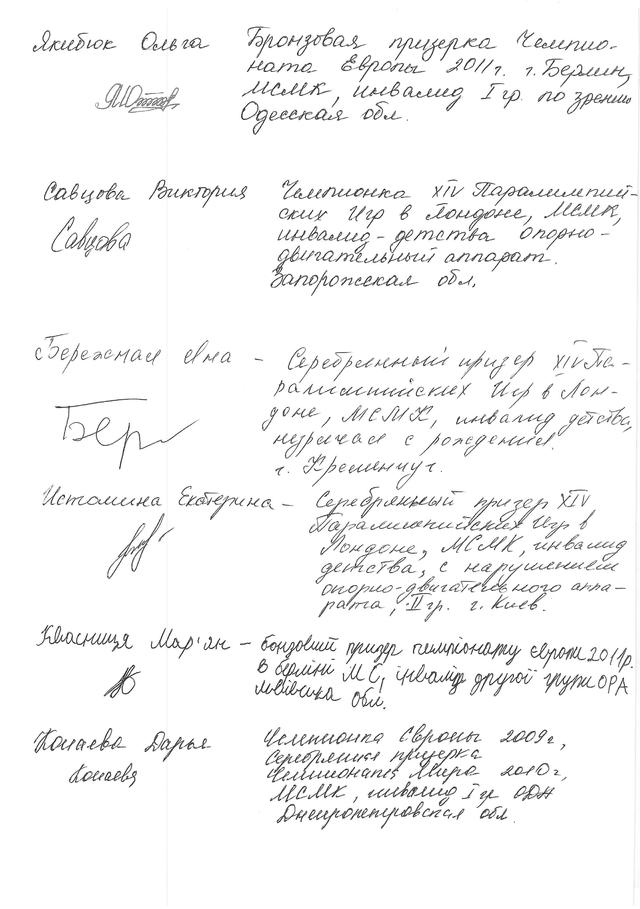 Якибюк Ольга Бронзовая призерка Чемпио-
ната Европы 2011г. г. Берлин,
МСМК, инвалид I гр. по зрению
Одесская обл.
Савцова Виктория Чемпионка XIV Паралимпий-
ских Игр в Лондоне, МСМК,
Савцова
инвалид-детства опорно-
двигательный аппарат.
Запорожская обл.
Бережная Яна – Серебрянный призер XIV Па-
ралимпийских Игр в Лон-
доне, МСМК, инвалид детства,
Бер
незрячая с рождения.
г. Кременчуг.
Истомина Екатерина – Серебряный призер XIV
Паралимпийских Игр в
Лондоне, МСМК, инвалид
детства, с нарушением
опорно-двигательного аппа-
рата, II гр. г. Киев.
Квасниця Мар'ян – бонзовий призер чемпіонату Європи 2011р.
в берліні МС, інвалід другої групи ОРА
львівська обл.
Копаева Дарья Чемпионка Европы 2009г,
Серебрянная призерка
Копаева Чемпионата Мира 2010г,
МСМК, инвалид I гр ОДН
Днепропетровская обл.